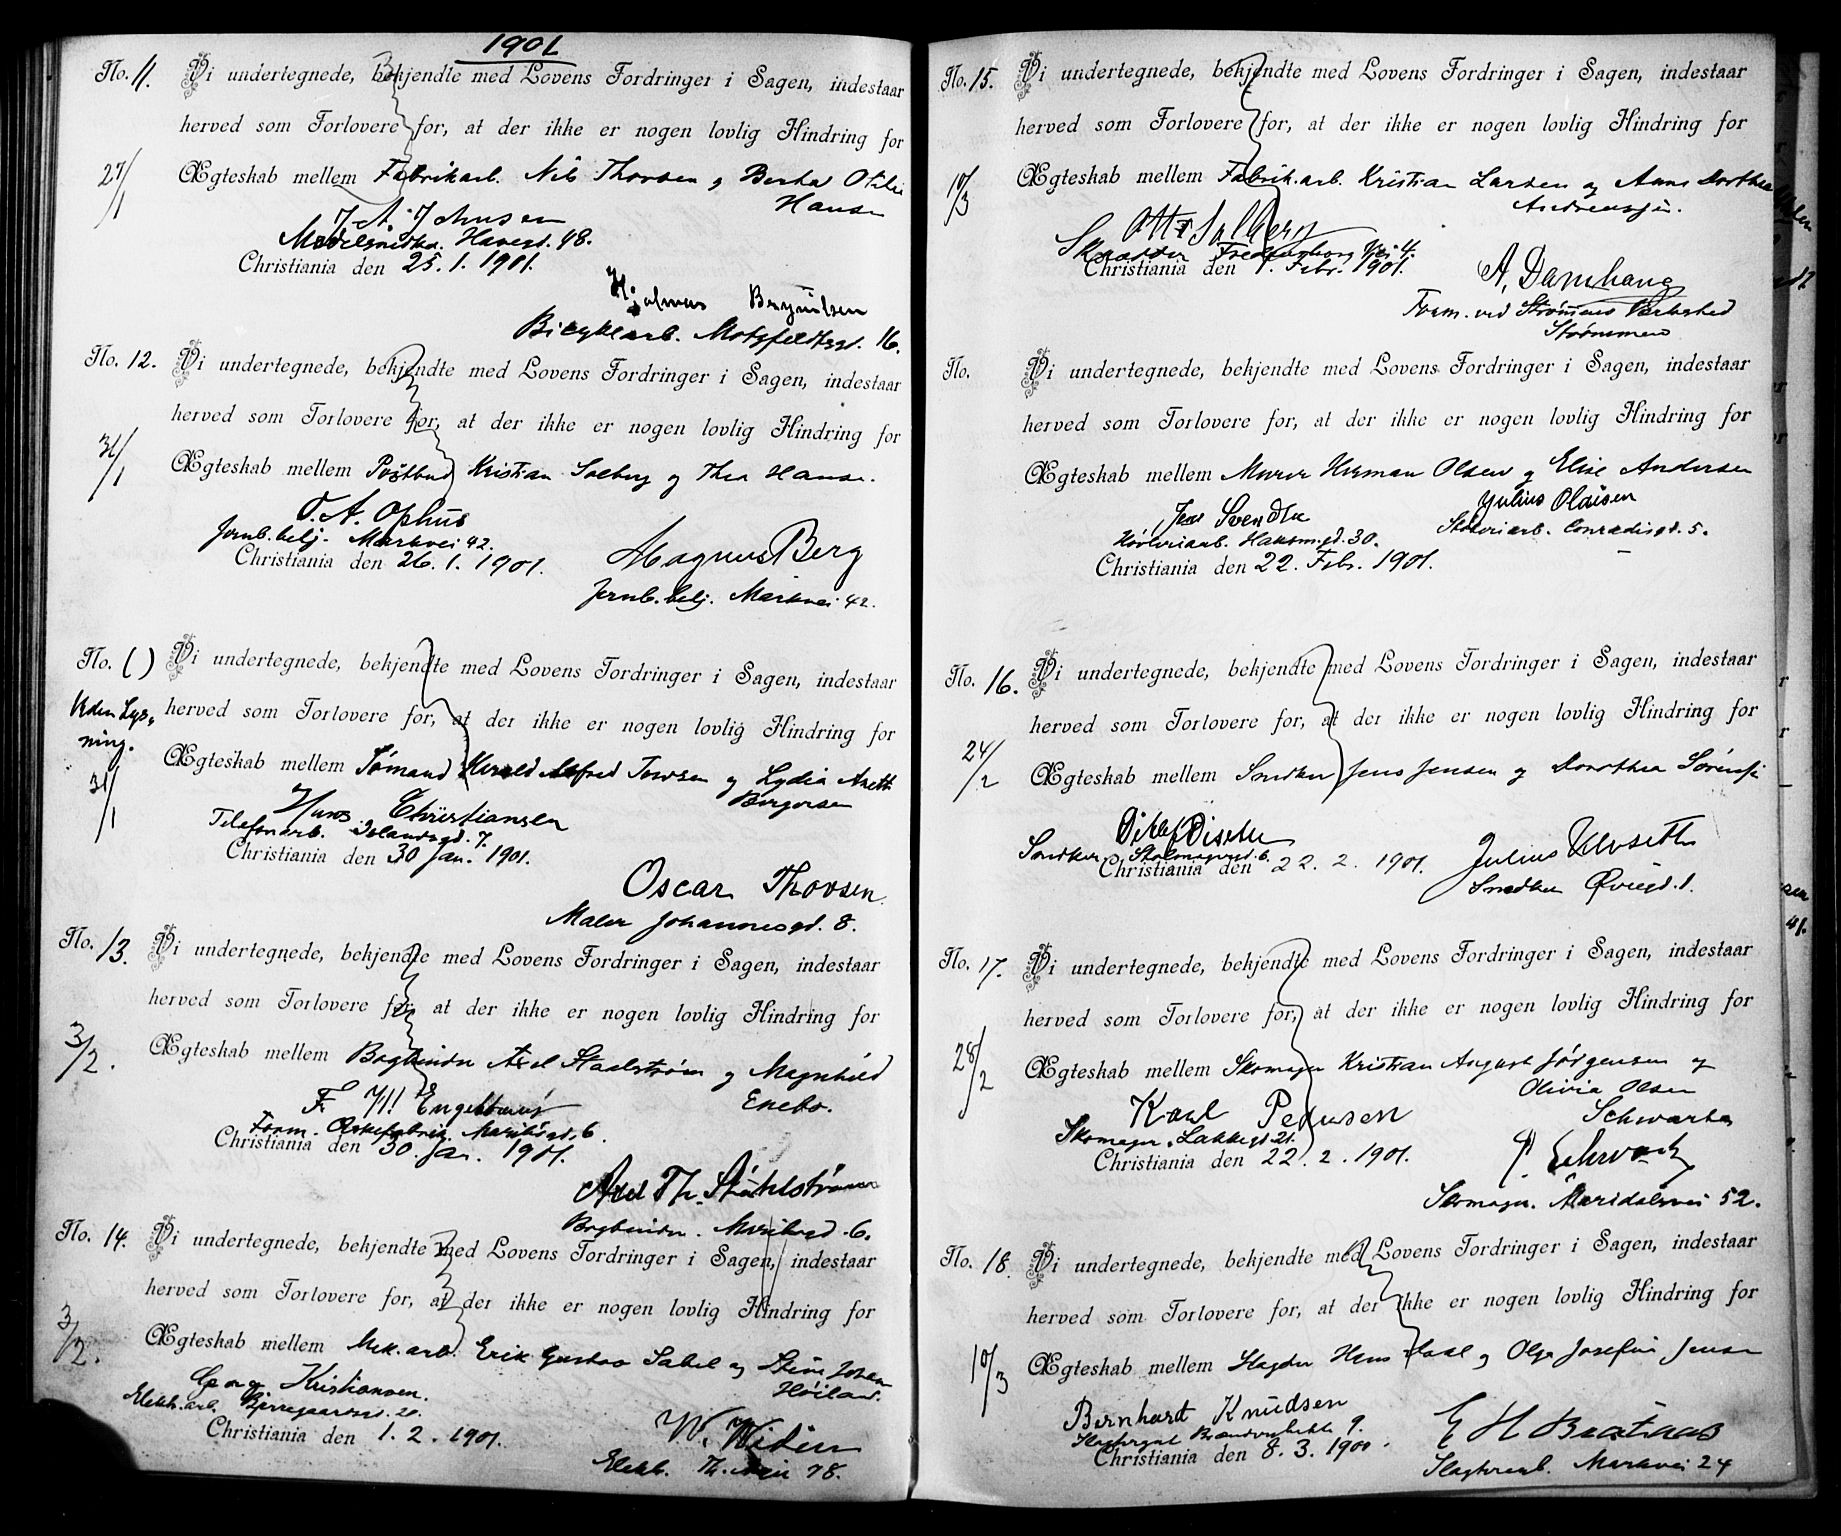 1901
No. 11. Vi undertegnede, bekjendte med Lovens Fordringer i Sagen, indestaar
herved som Forlovere for, at der ikke er nogen lovlig Hindring for
27/1 Ægteskab mellem Fabrikarb. Nils Thorsen og Berta Otilie
Hansen
J. A. Johnsen
Modelsnedker. Havegd. 48.
Christiania den 25. 1. 1901.
Hjalmar Brynilsen
Bicyklearb. Motzfeldtsgd. 16.
No. 12. Vi undertegnede, bekjendte med Lovens Fordringer i Sagen, indestaar
herved som Forlovere for, at der ikke er nogen lovlig Hindring for
31/1 Ægteskab mellem Postbud Kristian Solberg og Thea Hansen.
O. A. Ophus
Jernb.betj. Markvei 42.
Christiania den 26. 1. 1901.
Magnus Berg
Jernb.betj. Markvei 42.
No. ( ) Vi undertegnede, bekjendte med Lovens Fordringer i Sagen, indestaar
Uden Lys-
ning.
herved som Forlovere for, at der ikke er nogen lovlig Hindring for
31/1 Ægteskab mellem Sømand Harald Alfred Torsen og Lydia Anette
Borgersen
Hans Christiansen
Telefonarb. Islandsgd. 7.
Christiania den 30 Jan. 1901.
Oscar Thorsen
Maler Johannesgd. 8.
No. 13. Vi undertegnede, bekjendte med Lovens Fordringer i Sagen, indestaar
herved som Forlovere for, at der ikke er nogen lovlig Hindring for
3/2. Ægteskab mellem Bogbinder Axel Staalstrøm og Magnhild
Enebo.
F. W. Engebretsen
Form. Æskefabrik. 6.
Christiania den 30. Jan. 1901.
Axel Th. Ståhlström
Bogbinder. 6.
No. 14. Vi undertegnede, bekjendte med Lovens Fordringer i Sagen, indestaar
herved som Forlovere for, at der ikke er nogen lovlig Hindring for
3/2. Ægteskab mellem Mek.arb. Erik Gustav Sabel og Stine
Høiland.
Georg Kristiansen.
Elektr.arb. Bjerregaardsgd. 20.
Christiania den 1. 2. 1901.
W. Widén
Elektr. Th. 78.
No. 15. Vi undertegnede, bekjendte med Lovens Fordringer i Sagen, indestaar
herved som Forlovere for, at der ikke er nogen lovlig Hindring for
10/3 Ægteskab mellem Fabrik.arb. Kristian Larsen og Anna Dorthea
Andreassen.
Otto Solberg
Skrædder Fredensborg Vei 4.
Christiania den 1. Febr. 1901.
A. Damhaug
Form. ved Strømmens Værksted
Strømmen
No. Vi undertegnede, bekjendte med Lovens Fordringer i Sagen, indestaar
herved som Forlovere for, at der ikke er nogen lovlig Hindring for
Ægteskab mellem Murer Herman Olsen og Elise Andersen
Svendsen
Julius Olaisen
Høvleriarb. 30.
Støberiarb. Conradisgd. 5.
Christiania den 22. Febr. 1901.
No. 16. Vi undertegnede, bekjendte med Lovens Fordringer i Sagen, indestaar
herved som Forlovere for, at der ikke er nogen lovlig Hindring for
24/2 Ægteskab mellem Snedker Jens Jensen og Dorothea Sørensen
Snedker 6.
Christiania den 22. 2. 1901.
Julius
Snedker 1.
No. 17. Vi undertegnede, bekjendte med Lovens Fordringer i Sagen, indestaar
herved som Forlovere for, at der ikke er nogen lovlig Hindring for
28/2 Ægteskab mellem Skomager Kristian August Jørgensen og
Olivia Olsen
Karl Pedersen
Skomager. Lakkegd 21.
Christiania den 22. 2. 1901.
Schwartz
P. Schwartz
Skomager. Maridalsvei 52.
No. 18. Vi undertegnede, bekjendte med Lovens Fordringer i Sagen, indestaar
herved som Forlovere for, at der ikke er nogen lovlig Hindring for
10/3 Ægteskab mellem Slagter Hans og Olga Josefine Jensen
Bernhart Knudsen
9.
Christiania den 8. 3. 1901.
E H Braataas
Slagterarb. Markvei 24